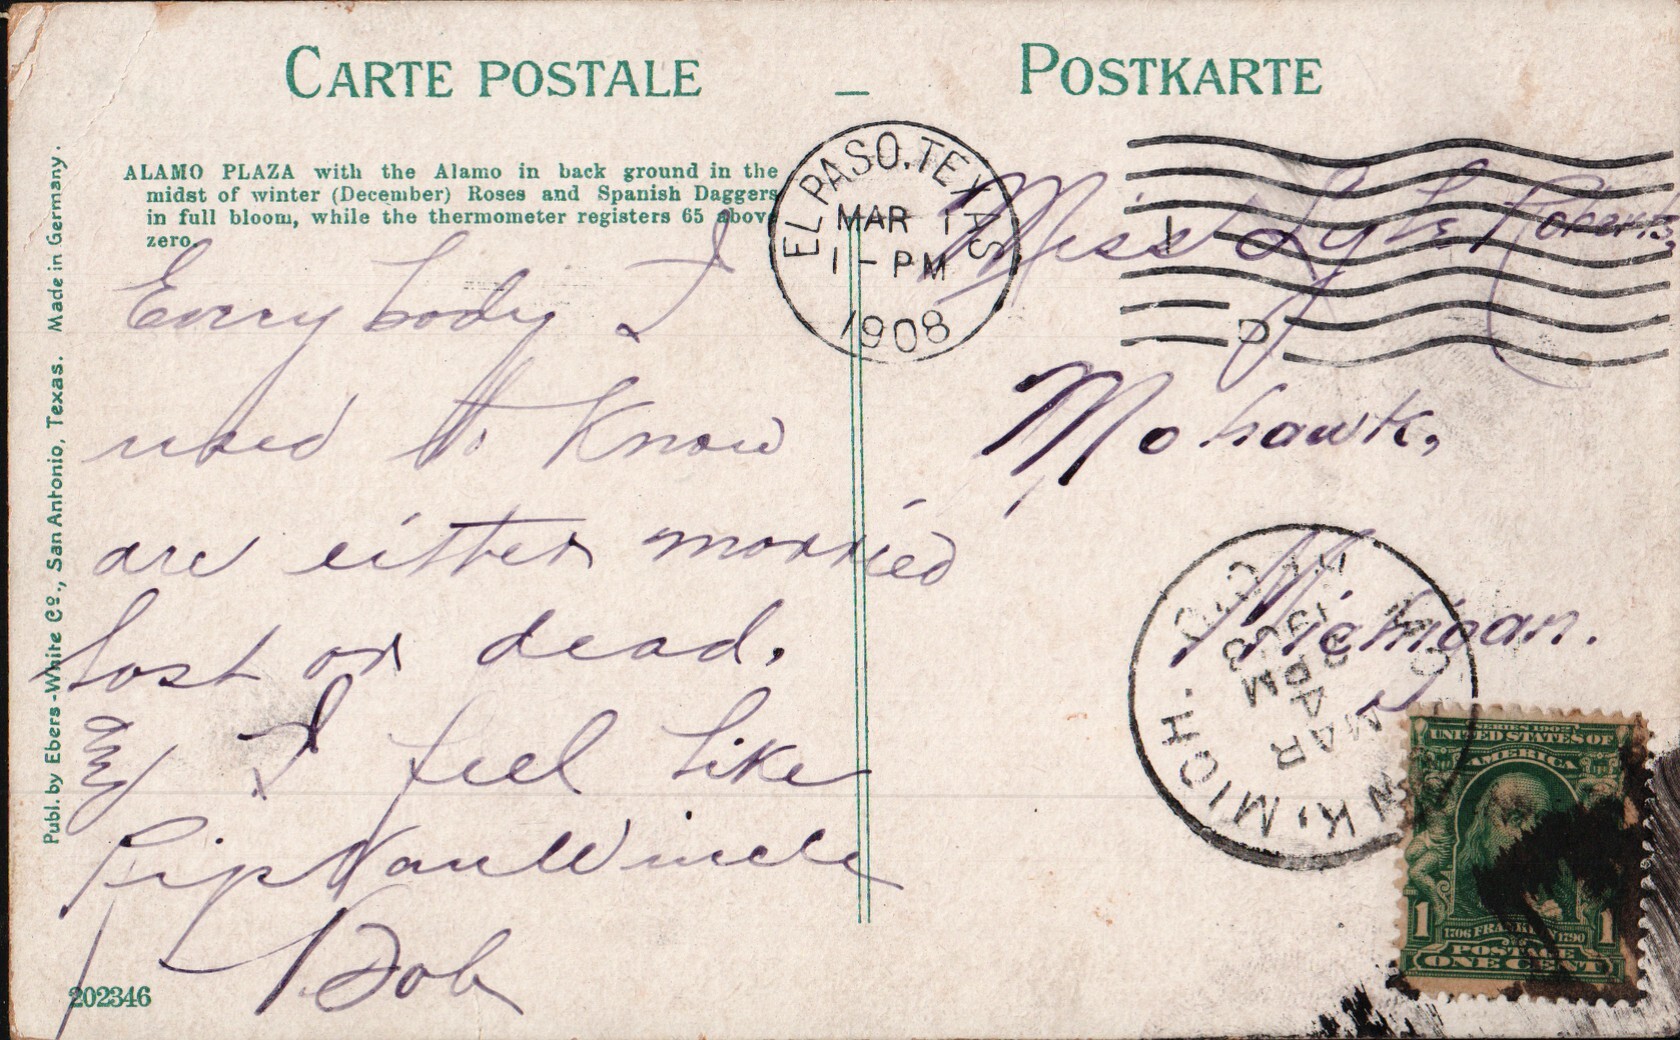 CARTE POSTALE — POSTKARTE
ALAMO PLAZA with the Alamo in back ground in the
midst of winter (December) Roses and Spanish Daggers
in full bloom, while the thermometer registers 65 above
zero.
Publ. by Ebers-White Co., San Antonio, Texas. Made in Germany.
EL PASO, TEXAS
MAR 1
1-PM
1908
Every body I
used to Know
are either married
Lost or dead.
and I feel like
Rip Van Wincle
Bob
202346
Miss Lyle Roberts
Mohawk,
Michigan.
MICH.
MAR
4
PM
1908
REC'D
SERIES 1902
UNITED STATES OF
AMERICA
1 1
1706 FRANKLIN 1790
POSTAGE
ONE CENT